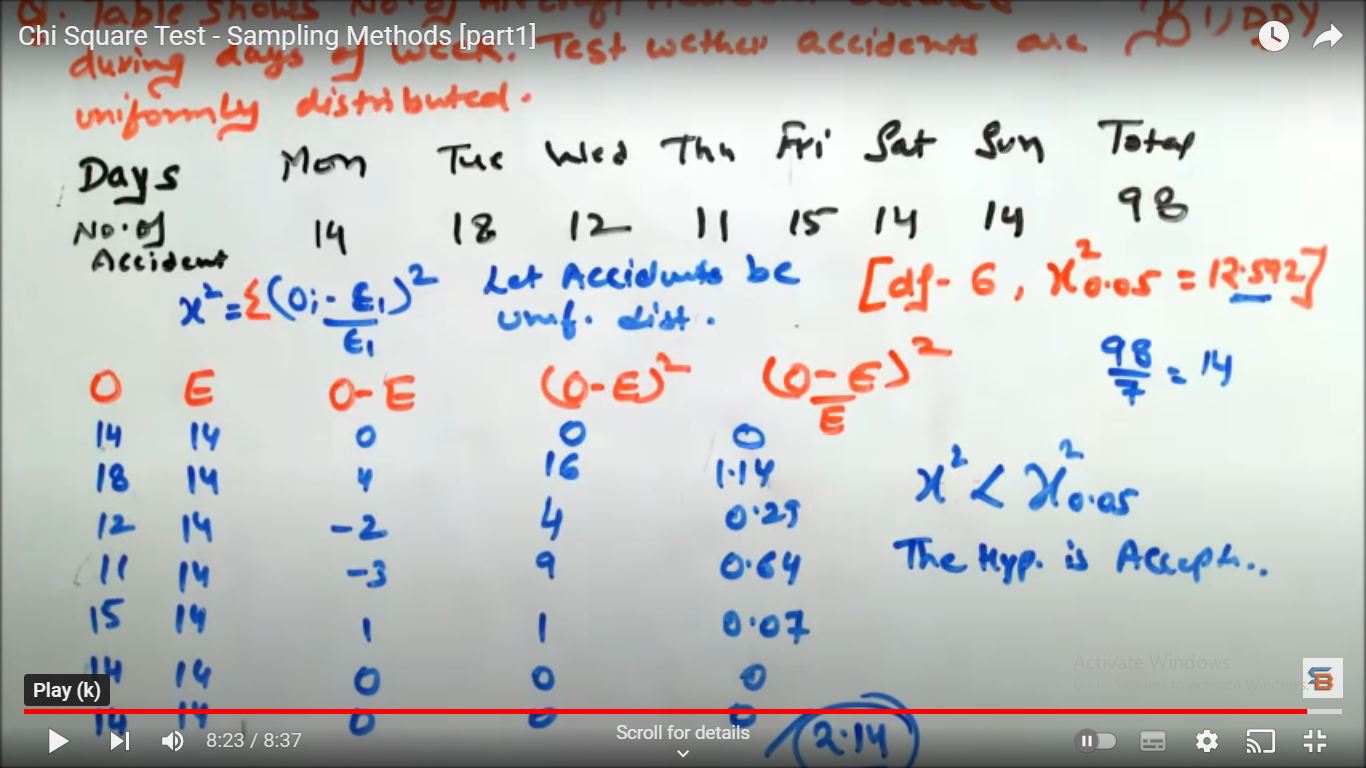 Chi Square Test - Sampling Methods [part1]
Q. Table shows No. of Aircraft Accident
during days of week. Test wether accidents are
uniformly distributed.
Days Mon Tue Wed Thu Fri Sat Sun Total
No. of Accident 14 18 12 11 15 14 14 98
x² = Σ(Oi - Ei)² / Ei
Let Accidents be
unif. dist.
[df - 6, x²0.05 = 12.592]
98/7 = 14
O E O-E (O-E)² (O-E)²/E
14 14 0 0 0
18 14 4 16 1.14
12 14 -2 4 0.29
11 14 -3 9 0.64
15 14 1 1 0.07
14 14 0 0 0
14 14 0 0 0
2.14
x² < x²0.05
The Hyp. is Accept..
Activate Windows
Go to Settings to activate Windows.
SB
Play (k)
8:23 / 8:37
Scroll for details